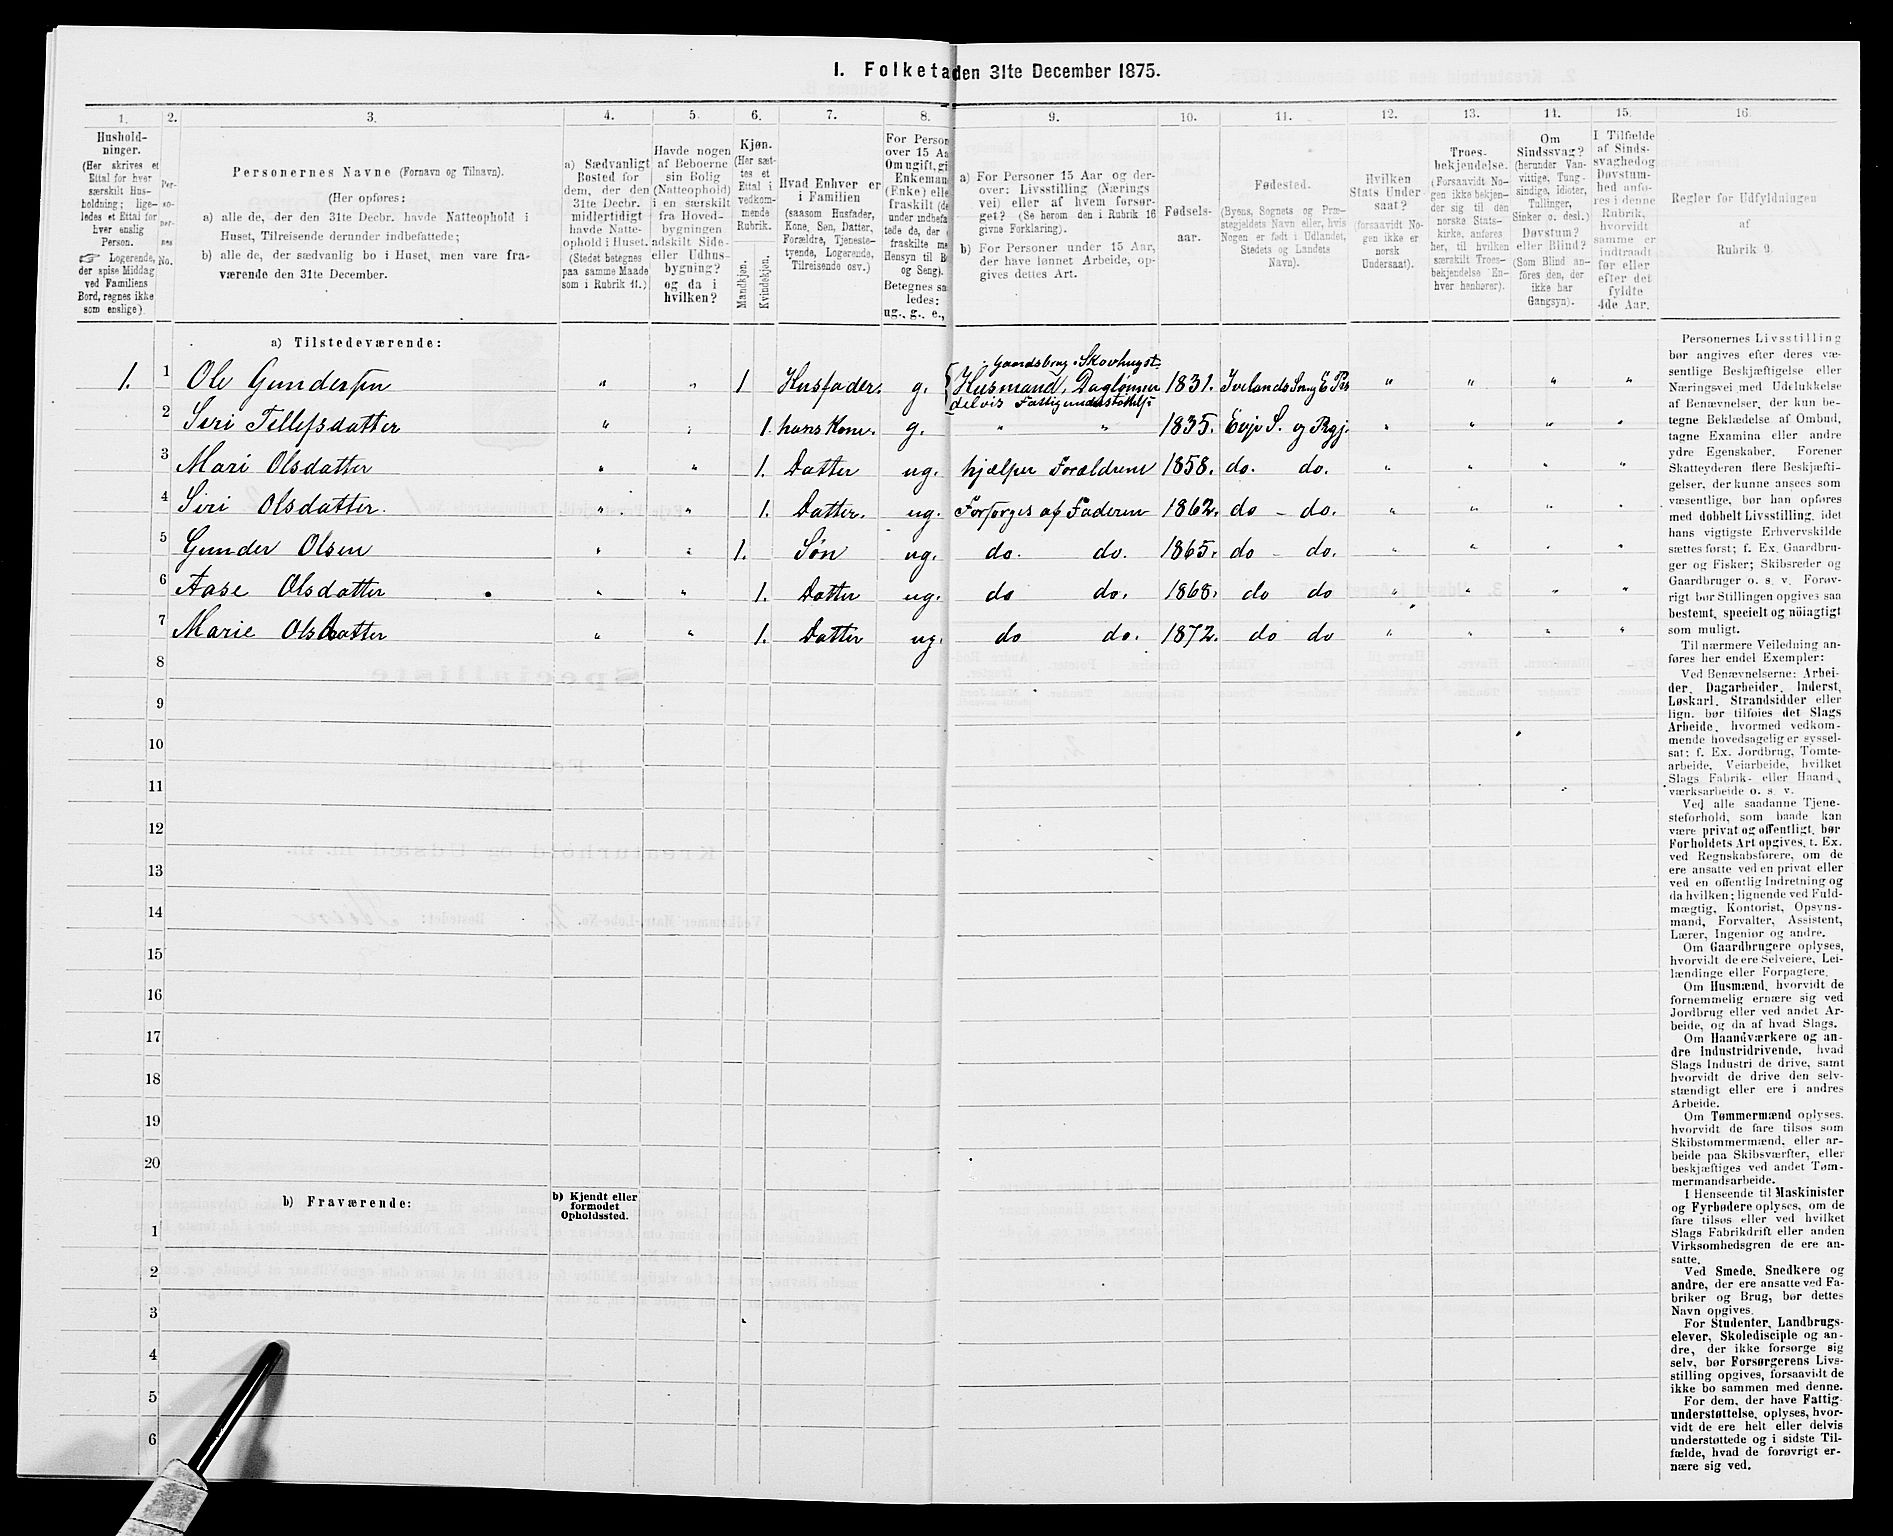 1. Folketa den 31te December 1875.
1. 2. 3. 4. 5. 6. 7. 8. 9. 10. 11. 12. 13. 14. 15. 16.
Hushold-
ninger.
(Her skrives et
Ettal for hver
særskilt Hus-
holdning; lige-
ledes et Ettal for
hver enslig
Person.
☞ Logerende,
der spise Middag
ved Familiens
Bord, regnes ikke
som enslige).
Per-
so-
per-
nes
No.
Personernes Navne (Fornavn og Tilnavn).
(Her opføres:
a) alle de, der den 31te Decbr. havde Natteophold i
Huset, Tilreisende derunder indbefattede;
b) alle de, der sædvanlig bo i Huset, men vare fra-
værende den 31te December.
a) Sædvanligt
Bosted for
dem, der den
31te Decbr.
midlertidigt
havde Natte-
ophold i Huset.
(Stedet betegnes
paa samme Maade
som i Rubrik 11.)
Havde nogen
af Beboerne
sin Bolig
(Natteophold)
i en særskilt
fra Hoved-
bygningen
adskilt Side-
eller Udhus-
bygning?
og da i
hvilken?
Kjøn.
(Her sæt-
tes et
Ettal i
vedkom-
mende
Rubrik.
Mandkjøn.
Kvindekjøn.
Hvad Enhver er
i Familien
(saasom Husfader,
Kone, Søn, Datter,
Forældre, Tjeneste-
tyende, Logerende,
Tilreisende osv.)
For Person
over 15 Aa
Om ugift, gi
Enkeman
(Enke) elle
fraskilt (de
under indbefa
tede de, der
fraskilte me
Hensyn til B
og Seng).
Betegnes sa
ledes:
ug., g., e.,
a) For Personer 15 Aar og der-
over: Livsstilling (Nærings
vei) eller af hvem forsør-
get? (Se herom den i Rubrik 16
givne Forklaring).
b) For Personer under 15 Aar,
der have lønnet Arbeide, op-
gives dettes Art.
Fødsels-
aar.
Fødested.
(Byens, Sognets og Præ-
stegjeldets Navn eller, hvis
Nogen er født i Udlandet,
Stedets og Landets
Navn).
Hvilken
Stats Under-
saat?
(forsaavidt No-
gen ikke er
norsk
Undersaat).
Troes-
bekjendelse.
(Forsaavidt No-
gen ikke bekjen-
der sig til den
norske Stats-
kirke, anføres
her, til hvilken
særskilt Troes-
bekjendelse En-
hver henhører).
Om
Sindssvag?
(herunder Van-
vittige, Tung-
sindige, Idioter,
Tullinger,
Sinker o. desl.)
Døvstum?
eller Blind?
(Som Blind an-
føres den, der
ikke har
Gangsyn).
I Tilfælde
af Sinds-
svaghed og
Døvstum-
hed anfø-
res i denne
Rubrik,
hvorvidt
samme er
indtraadt
før eller
efter det
fyldte
4de Aar.
Regler for Udfyldningen
af
Rubrik 9.
a) Tilstedeværende:
Gaardsbrug. Skovhugst
1. 1 Ole Gundersen " " 1 Husfader. g. Husmand, Dagløner 1831. Ivelands Sog E Prs " " " "
delvis Fattigunderstøttelse
2 Siri Tellefsdatter " " 1. hans Kone. g. " " 1835. Evje S. og Prgj. " " " "
3 Mari Olsdatter " " 1. Datter ug. hjælper Forældrene 1858. do. do. " " " "
4 Siri Olsdatter. " " 1. Datter. ug. Forsørges af Faderen 1862. do - do. " " " "
5 Gunder Olsen " " 1. Søn ug. do. do. 1865. do - do. " " " "
6 Aase Olsdatter " " 1. Datter ug. do do. 1868. do do " " " "
7 Marie Olsdatter " " 1. Datter ug. do do. 1872. do do " " " "
8
9
10
11
12
13
14
15
16
17
18
19
20
b) Fraværende:
b) Kjendt eller
formodet
Opholdssted.
1
2
3
4
5
6
Personernes Livsstilling
bør angives efter deres væ-
sentlige Beskjæftigelse eller
Næringsvei med Udelukkelse
af Benævnelser, der kun be-
tegne Beklædelse af Ombud,
tagne Examina eller andre
ydre Egenskaber. Forener
Skatteyderen flere Beskjæfti-
gelser, der kunne ansees som
væsentlige, bør han opføres
med dobbelt Livsstilling, idet
hans vigtigste Erhvervskilde
sættes først; f. Ex. Gaardbru-
ger og Fisker; Skibsreder og
Gaardbruger o. s. v. Forøv-
rigt bør Stillingen opgives saa
bestemt, specielt og nöiagtigt
som muligt.
Til nærmere Veiledning an-
føres her endel Exempler:
Ved Benævnelserne: Arbei-
der, Dagarbeider, Inderst,
Løskarl, Strandsidder eller
lign. bør tilføies det Slags
Arbeide, hvormed vedkom-
mende hovedsagelig er syssel-
sat; f. Ex. Jordbrug, Tomte-
arbeide, Veiarbeide, hvilket
Slags Fabrik- eller Haand-
værksarbeide o. s. v.
Ved alle saadanne Tjene-
steforhold, som baade kan
være privat og offentligt, bør
Forholdets Art opgives, t. Ex.
ved Regnskabsførere, om de
ere ansatte ved en privat eller
ved en offentlig Indretning og
da hvilken; lignende ved Fuld-
mægtig, Kontorist, Opsyns-
mand, Forvalter, Assistent,
Lærer, Ingeniør og andre.
Om Gaardbrugere oplyses,
hvorvidt de ere Selveiere, Lei-
lændinge eller Forpagtere.
Om Husmænd, hvorvidt de
fornemmelig ernære sig ved
Jordbrug eller ved andet Ar-
beide, og da af hvad Slags.
Om Haandværkere og an-
dre Industridrivende, hvad
Slags Industri de drive, samt
hvorvidt de drive den selv-
stændigt eller ere i andres
Arbeide.
Om Tømmermænd oplyses,
hvorvidt de fare tilsøs som
Skibstømmermænd, eller ar-
beide paa Skibsværfter, eller
beskjæftiges ved andet Tøm-
mermandsarbeide.
I Henseende til Maskinister
og Fyrbødere oplyses, om de
fare tilsøs eller ved hvilket
Slags Fabrikdrift eller anden
Virksomhedsgren de ere an-
satte.
Ved Smede, Snedkere og
andre, der ere ansatte ved Fa-
briker og Brug, bør dettes
Navn opgives.
For Studenter, Landbrugs-
elever, Skoledisciple og an-
dre, der ikke forsørge sig
selv, bør Forsørgerens Livs-
stilling opgives, forsaavidt de
ikke bo sammen med denne.
For dem, der have Fattig-
understøttelse, oplyses, hvor-
vidt de ere helt eller delvis
understøttede og i sidste Til-
fælde, hvad de forøvrigt er-
nære sig ved.